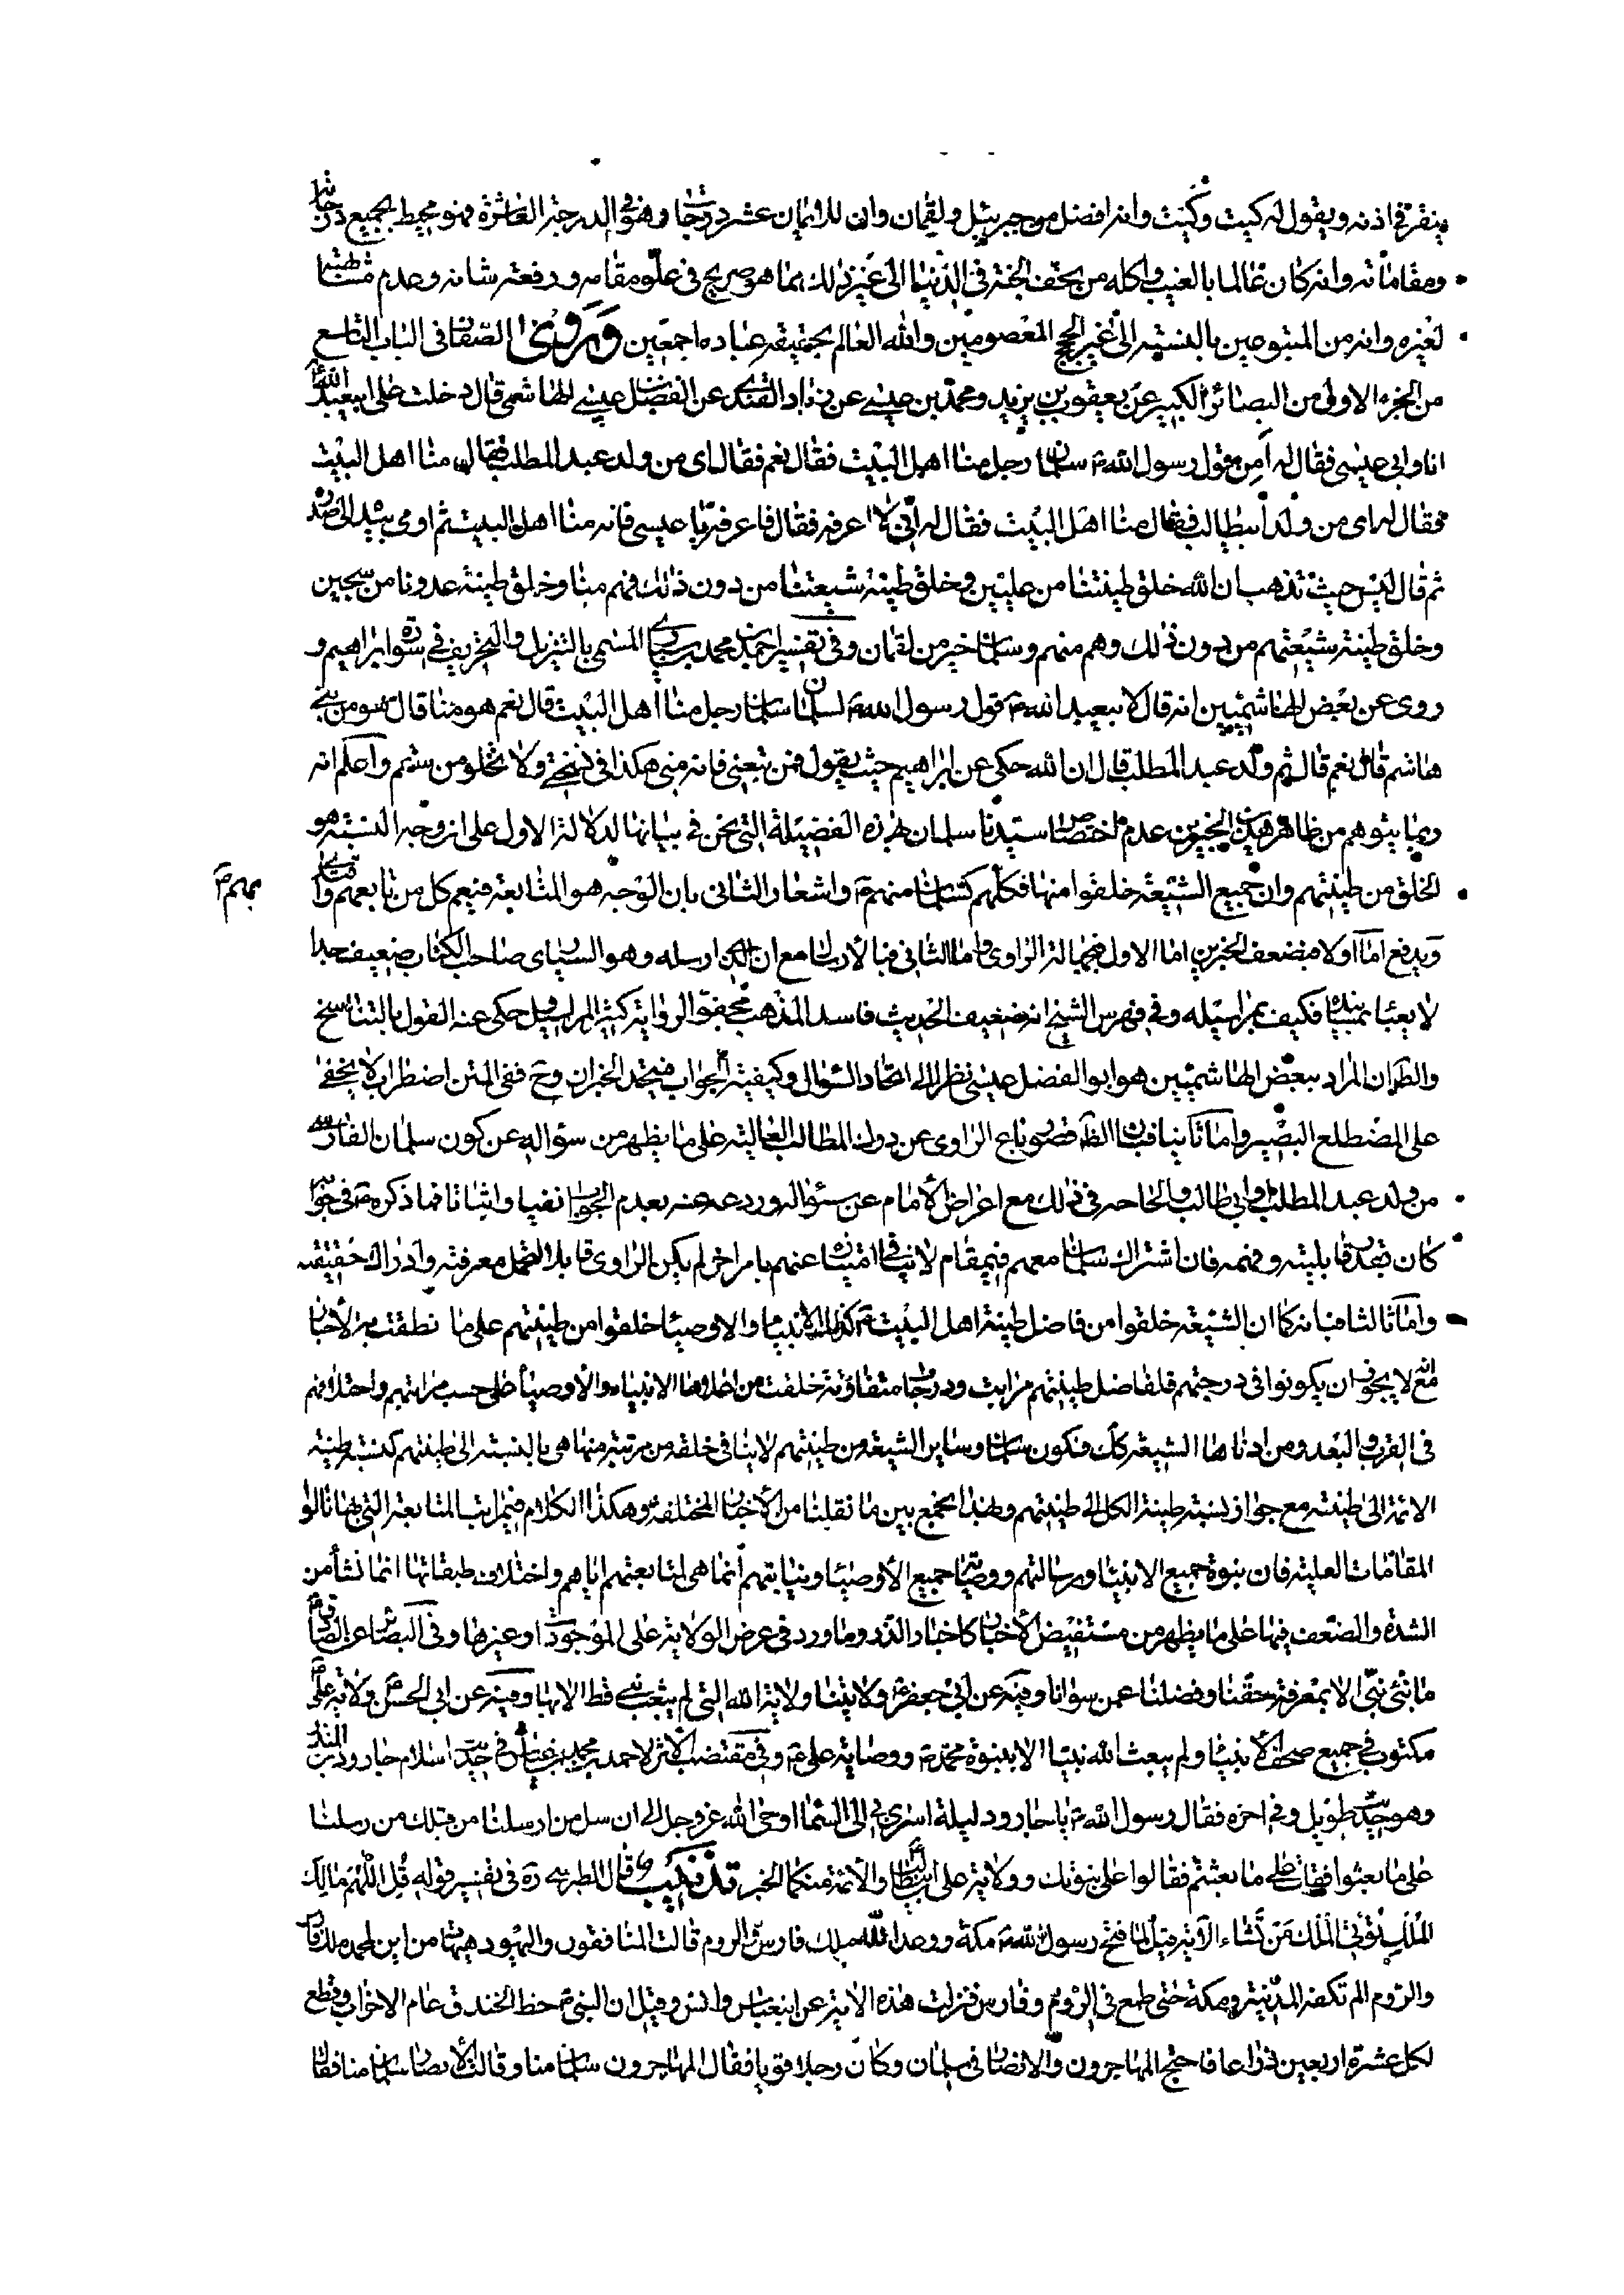 ينقر في اذنه ويقول له كيت وكيت وانه افضل من جبرئيل ولقمان وان للايمان عشر درجات وهو في الدرجة العاشرة فهو محيط بجميع درجاته
ومقاماته وانه كان عالما بالغيب واكله من تحف الجنة في الدنيا الى غير ذلك مما هو صريح في علو مقامه ورفعة شانه وعدم
لغيره وانه من المتبوعين بالنسبة الى غير الحجج المعصومين والله العالم بحقيقة عباده اجمعين وروى الصفار في الباب التاسع
من الجزء الاول من البصائر الكبير عن يعقوب بن يزيد ومحمد بن عيسى عن زياد القندي عن الفضل بن عيسى الهاشمي قال دخلت على ابي عبد الله ع
انا وابي عيسى فقال له أمن قول رسول الله ص سلمان رجل منا اهل البيت فقال نعم فقال اي من ولد عبد المطلب فقال منا اهل البيت
فقال له اي من ولد ابيطالب فقال منا اهل البيت فقال له اني لا اعرفه فقال فاعرفه يا عيسى فانه منا اهل البيت ثم اومى بيده الى صدره
ثم قال ليس حيث تذهب ان الله خلق طينتنا من عليين وخلق طينة شيعتنا من دون ذلك فهم منا وخلق طينة عدونا من سجين
وخلق طينة شيعتهم من دون ذلك وهم منهم وسلمان خير من لقمان وفي تفسير احمد بن محمد السياري المسمى بالتنزيل والتحريف في سورة ابراهيم و
روى عن بعض الهاشميين انه قال لابيعبد الله ع قول رسول الله ص لسلمان سلمان رجل منا اهل البيت قال نعم هو منا قال هو من بني
هاشم قال نعم قال ثم ولد عبد المطلب قال ان الله حكى عن ابراهيم حيث يقول فمن تبعني فانه مني هكذا في نسختي ولا تخلو من سقم واعلم انه
ربما يتوهم من ظاهر هذين الخبرين عدم اختصاص سيدنا سلمان بهذه الفضيلة التي نحن في بيانها لدلالة الاول على ان وجه النسبة هو
الخلق من طينتهم وان جميع الشيعة خلقوا منها فكلهم كسلمان منهم ع واشعار الثاني بان الوجه هو المتابعة فيعم كل من تابعهم و
ويدفع اما اولا فبضعف الخبرين اما الاول فبجهالة الراوي واما الثاني فبالارسال مع ان الذي ارسله وهو السياري صاحب الكتاب ضعيف جدا
لا يعبأ بمسانيده فكيف بمراسيله وفي فهرس الشيخ انه ضعيف الحديث فاسد المذهب مجفو الرواية كثير المراسيل حكي عنه القول بالتناسخ
والظ ان المراد ببعض الهاشميين هو ابو الفضل عيسى نظرا الى اتحاد السؤال وكيفية الجواب فيتحد الخبران وح ففي المتن اضطراب لا يخفى
على المضطلع البصير واما ثانيا فبان الظ قصور باع الراوي عن درك المطالب العالية على ما يظهر من سؤاله عن كون سلمان الفارسي
من ولد عبد المطلب وابي طالب والحاحه في ذلك مع اعراض الامام عن سؤاله وردعه عنه بعدم الجواب نفيا واثباتا فما ذكره ع في جوابه
كان بقدر قابليته وفهمه فان اشتراك سلمان معهم في مقام لا ينافي امتيازه عنهم بامر اخر لم يكن الراوي قابلا لتحمل معرفته وادراك حقيقته
واما ثالثا فبانه كما ان الشيعة خلقوا من فاضل طينة اهل البيت ع كذلك الانبياء والاوصياء خلقوا من طينتهم على ما نطقت به الاخبار
مع انه لا يجوز ان يكونوا في درجتهم فلفاضل طينتهم مراتب ودرجات متفاوتة خلقت من اعلاها الانبياء والاوصياء على حسب مراتبهم واختلافهم
في القرب والبعد ومن ادناها الشيعة كك فكون سلمان وساير الشيعة من طينتهم لاينافي خلقه من مرتبة منها هي بالنسبة الى طينتهم كنسبة طينة
الائمة الى طينته مع جواز نسبة طينة الكل الى طينتهم وبهذا يجمع بين ما نقلنا من الاخبار المختلفة وهكذا الكلام في مراتب المتابعة التي بها نالوا
المقامات العلية فان نبوة جميع الانبياء ورسالتهم ووصاية جميع الاوصياء ونيابتهم انما هي لمتابعتهم اياهم واختلاف طبقاتها انما نشأ من
الشدة والضعف فيها على ما يظهر من مستفيض الاخبار كاخبار الذر وما ورد في عرض الولاية على الموجودات وغيرها وفي البصائر عن الصادق ع
ما نبئ نبي الا بمعرفة حقنا وفضلنا عمن سوانا وفيه عن ابي جعفر ع ولايتنا ولاية الله التي لم يبعث نبي قط الا بها وفيه عن ابي الحسن ع ولاية علي ع
مكتوب في جميع صحف الانبياء ولم يبعث الله نبيا الا بنبوة محمد ص ووصاية علي ع وفي مقتضب الاثر لاحمد بن محمد بن عياش في حديث اسلام جارود بن المنذر
وهو حديث طويل وفي اخره فقال رسول الله ص يا جارود ليلة اسري بي الى السماء اوحى الله عز وجل الي ان سل من ارسلنا من قبلك من رسلنا
على ما بعثوا فقلت على ما بعثتم فقالوا على نبوتك وولاية علي بن ابيطالب والائمة منكما الخبر تذنيب قال الطبرسي ره في تفسير قوله قل اللهم مالك
الملك تؤتي الملك من تشاء الاية قيل لما فتح رسول الله ص مكة ووعد الله ملك فارس والروم قالت المنافقون واليهود هيهات من اين لمحمد ملك فارس
والروم الم تكفه المدينة ومكة حتى طمع في الروم وفارس فنزلت هذه الاية عن ابن عباس وانس وقيل ان النبي ص خط الخندق عام الاحزاب وقطع
لكل عشرة اربعين ذراعا فاحتج المهاجرون والانصار في سلمان وكان رجلا قويا فقال المهاجرون سلمان منا وقالت الانصار سلمان منا فقال